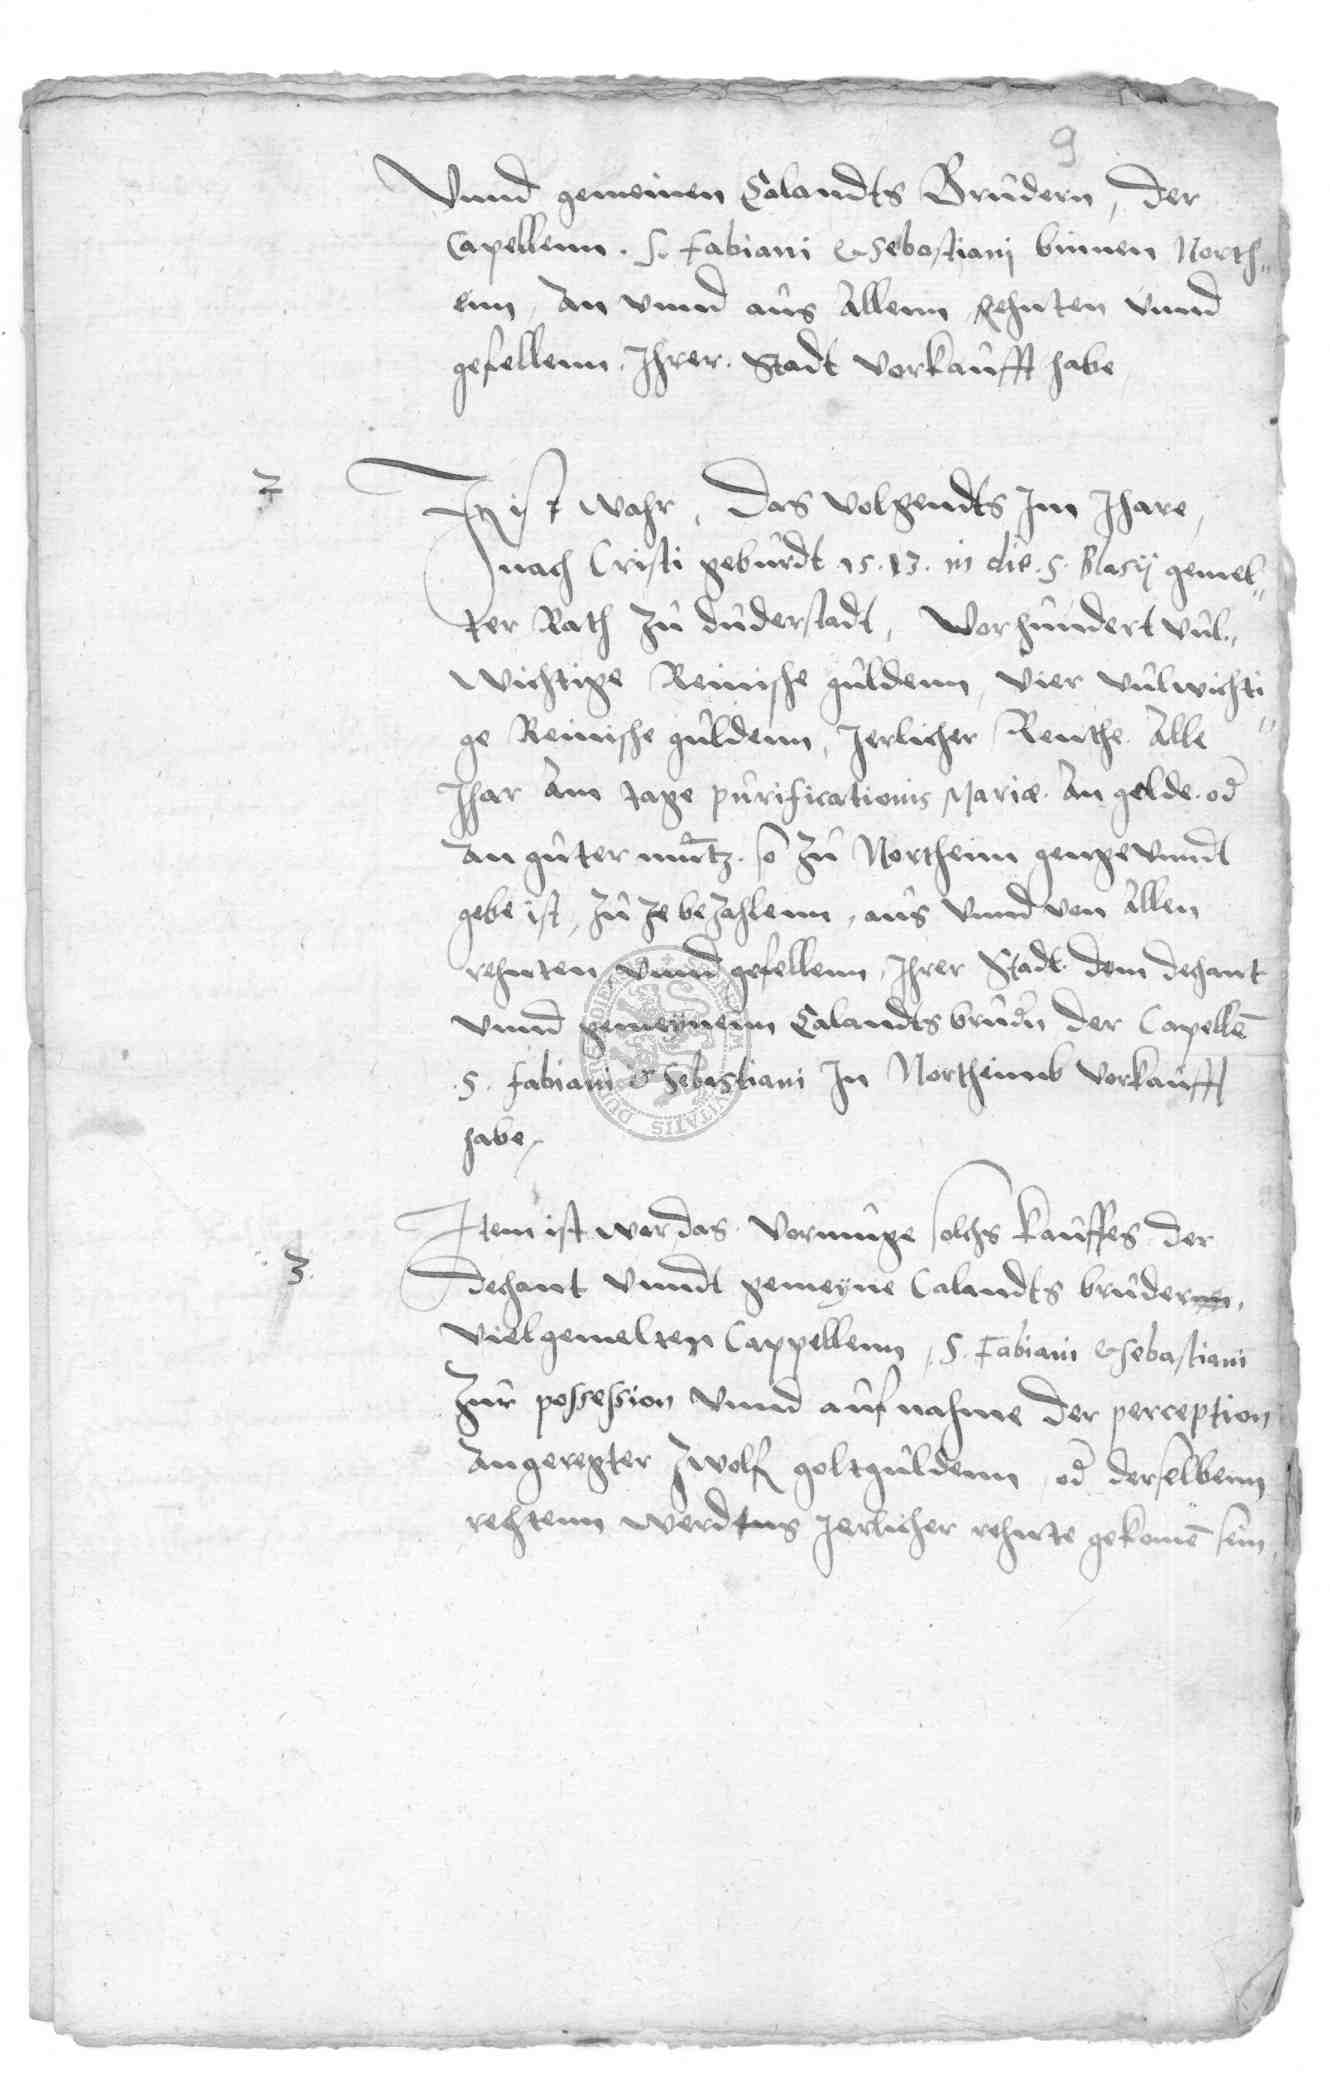 9
Vnnd gemeinen Calandts Brudern, der
Capellenn. S. Fabiani & Sebastiani binnen North„
eim, An vnnd aus Allenn rehnten vnnd
gefellenn. Ihrer. Stadt vorkaufft habe
2
It ist wahr, Das volgendts Im Ihare,
nach Cristi geburdt 15.13. in die. S. Blasij gemel„
ter Rath zu duderstadt, Vor hundert vul„
wichtige Reinishe guldenn, vier vulwichti„
ge Reinishe guldenn, Jerlicher Renthe. Alle
Ihar Am tage purificationis Mariæ. An gelde. od
An guter muntz. so zu Northeim genge vnndt
gebe ist, zu
bezahlenn, aus vnnd von Allen
rehnten vnnd gefellenn, Ihrer Stadt. dem dechant
vnnd gemeynenn Calandts brudn der Capellē
.S. Fabiani & Sebastiani In Northeimb vorkaufft
habe,
3.
Item ist wor das. Vormuge solchs kauffes der
dechant vnndt gemeyne Calandts bruder,
vielgemelten Cappellenn, S. Fabiani & Sebastiani
Zur possession vnnd aufnahme der perception
Angeregter zwolf goltguldenn, od derselbenn
rechtenn werdens Jerlicher rehnte gekomē sein,